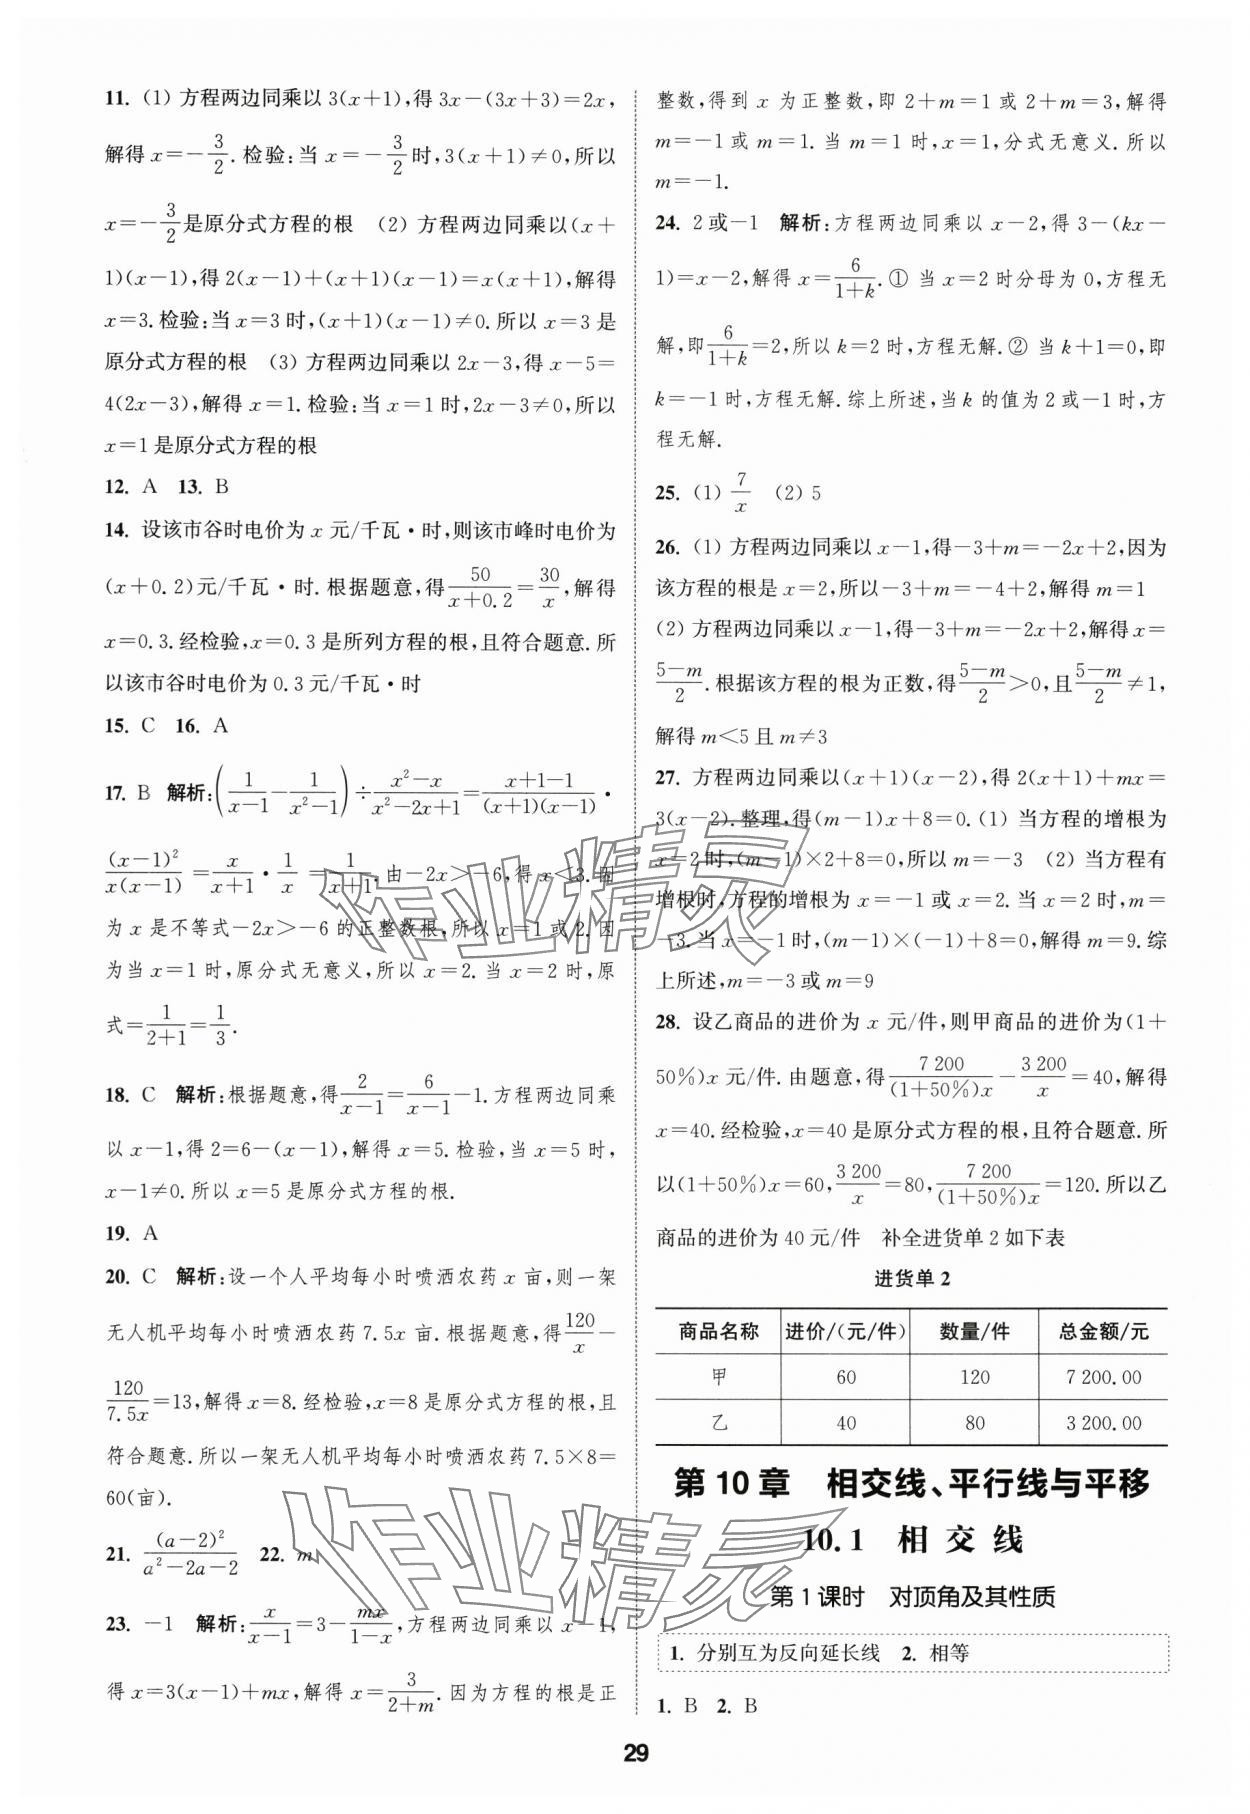 11. (1) 方程两边同乘以 3(x+1),得 3x-(3x+3)=2x,
解得 x=-3/2.检验:当 x=-3/2时,3(x+1)≠0,所以
x=-3/2是原分式方程的根 (2) 方程两边同乘以(x+
1)(x-1),得 2(x-1)+(x+1)(x-1)=x(x+1),解得
x=3.检验:当 x=3 时,(x+1)(x-1)≠0.所以 x=3 是
原分式方程的根 (3) 方程两边同乘以 2x-3,得 x-5=
4(2x-3),解得 x=1.检验:当 x=1 时,2x-3≠0,所以
x=1 是原分式方程的根
12. A 13. B
14. 设该市谷时电价为 x 元/千瓦·时,则该市峰时电价为
(x+0.2)元/千瓦·时.根据题意,得50/(x+0.2)=30/x,解得
x=0.3.经检验,x=0.3 是所列方程的根,且符合题意.所
以该市谷时电价为 0.3 元/千瓦·时
15. C 16. A
17. B 解析:(1/(x-1)-1/(x²-1))÷(x²-x)/(x²-2x+1)=(x+1-1)/((x+1)(x-1))·
(x-1)²/(x(x-1))=x/(x+1)·1/x=1/(x+1).由-2x>-6,得 x<3.因
为 x 是不等式-2x>-6 的正整数根,所以 x=1 或 2.因
为当 x=1 时,原分式无意义,所以 x=2.当 x=2 时,原
式=1/(2+1)=1/3.
18. C 解析:根据题意,得2/(x-1)=6/(x-1)-1.方程两边同乘
以 x-1,得 2=6-(x-1),解得 x=5.检验,当 x=5 时,
x-1≠0.所以 x=5 是原分式方程的根.
19. A
20. C 解析:设一个人平均每小时喷洒农药 x 亩,则一架
无人机平均每小时喷洒农药 7.5x 亩.根据题意,得120/x-
120/7.5x=13,解得 x=8.经检验,x=8 是原分式方程的根,且
符合题意.所以一架无人机平均每小时喷洒农药 7.5×8=
60(亩).
21. (a-2)²/(a²-2a-2) 22. m
23. -1 解析:x/(x-1)=3-mx/(1-x),方程两边同乘以 x-1,
得 x=3(x-1)+mx,解得 x=3/(2+m).因为方程的根是正
整数,得到 x 为正整数,即 2+m=1 或 2+m=3,解得
m=-1 或 m=1.当 m=1 时,x=1,分式无意义.所以
m=-1.
24. 2或-1 解析:方程两边同乘以 x-2,得 3-(kx-
1)=x-2,解得 x=6/(1+k).① 当 x=2 时分母为 0,方程无
解,即6/(1+k)=2,所以 k=2 时,方程无解.② 当 k+1=0,即
k=-1 时,方程无解.综上所述,当 k 的值为 2 或-1 时,方
程无解.
25. (1) 7/x (2) 5
26. (1) 方程两边同乘以 x-1,得-3+m=-2x+2,因为
该方程的根是 x=2,所以-3+m=-4+2,解得 m=1
(2) 方程两边同乘以 x-1,得-3+m=-2x+2,解得 x=
(5-m)/2.根据该方程的根为正数,得(5-m)/2>0,且(5-m)/2≠1,
解得 m<5 且 m≠3
27. 方程两边同乘以(x+1)(x-2),得 2(x+1)+mx=
3(x-2).整理,得(m-1)x+8=0.(1) 当方程的增根为
x=2 时,(m-1)×2+8=0,所以 m=-3 (2) 当方程有
增根时,方程的增根为 x=-1 或 x=2.当 x=2 时,m=
-3.当 x=-1 时,(m-1)×(-1)+8=0,解得 m=9.综
上所述,m=-3 或 m=9
28. 设乙商品的进价为 x 元/件,则甲商品的进价为(1+
50%)x 元/件.由题意,得7 200/((1+50%)x)-3 200/x=40,解得
x=40.经检验,x=40 是原分式方程的根,且符合题意.所
以(1+50%)x=60,3 200/x=80,7 200/((1+50%)x)=120.所以乙
商品的进价为 40 元/件 补全进货单 2 如下表
进货单 2
商品名称 进价/(元/件) 数量/件 总金额/元
甲 60 120 7 200.00
乙 40 80 3 200.00
第 10 章 相交线、平行线与平移
10.1 相交线
第 1 课时 对顶角及其性质
1. 分别互为反向延长线 2. 相等
1. B 2. B
29
作业精灵
作业精灵